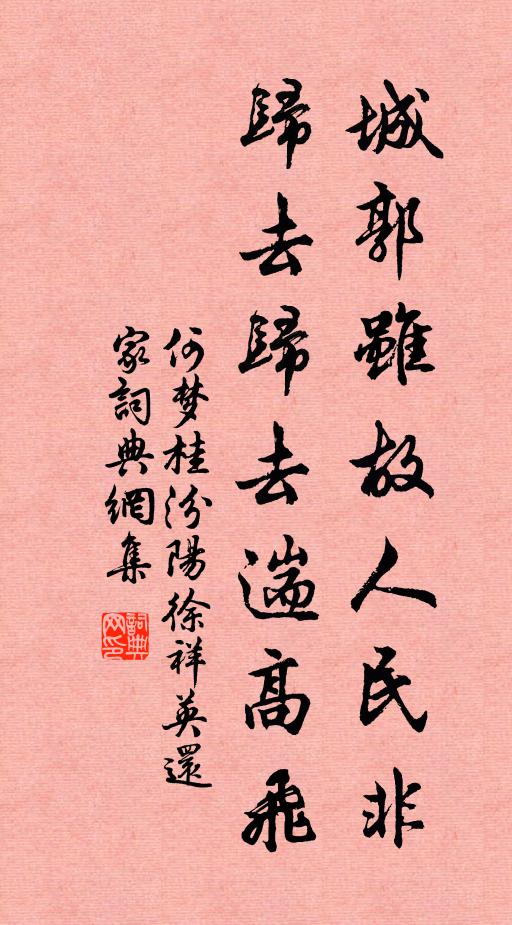 城郭雖故人民非
歸去歸去遄高飛
何梦桂汾陽徐祥英還
家詞典網集
詞典
网印